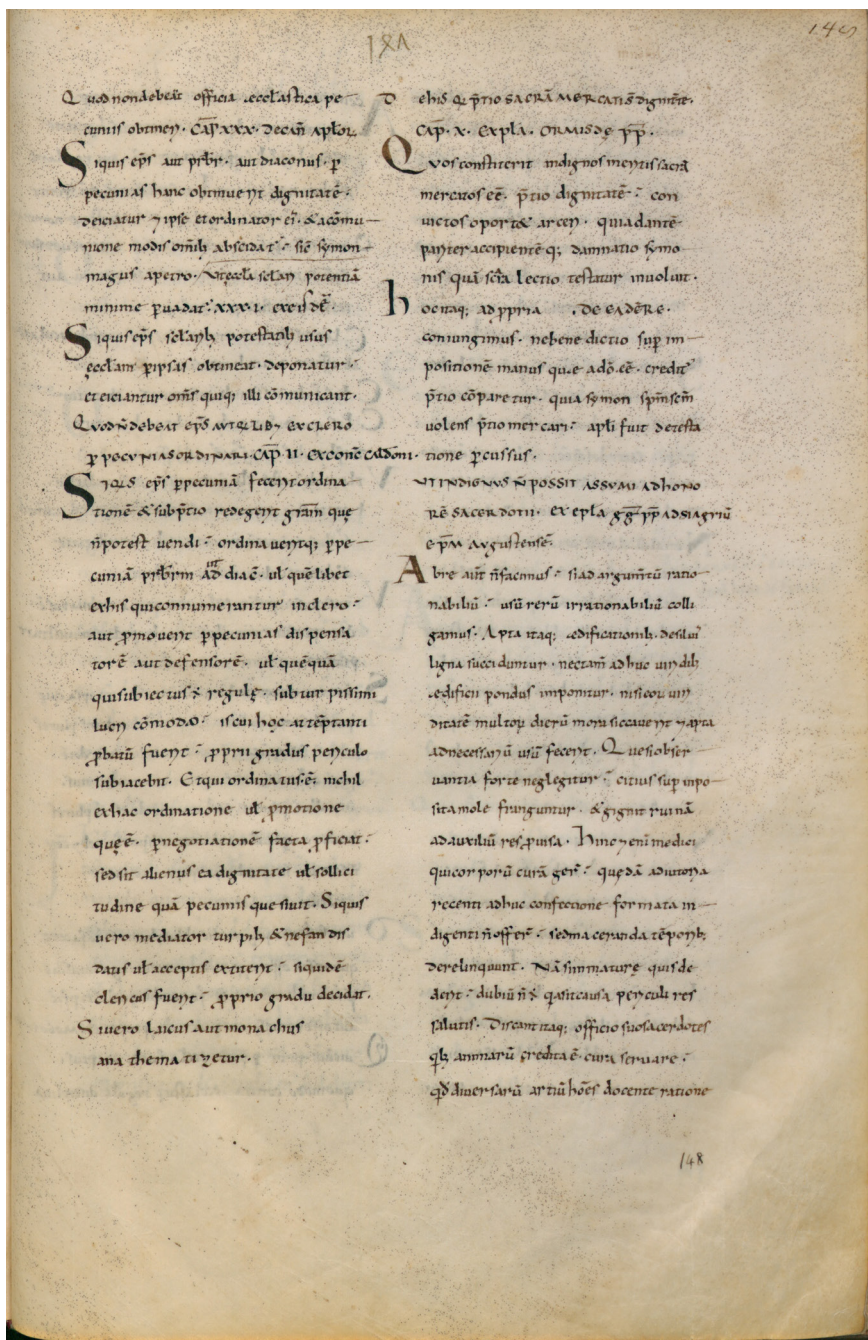 149
Quod non debeāt officia ęcclᷓastica pe
cuniis obtineri. CAP̄. XXX. Decan̄ aplōꝝ
Siquis ep̄s aut pr̄br. aut diaconus. ꝑ
pecunias hanc obtinuerit dignitatē.
deiciatur ⁊ ipse et ordinator ei'. & a cōmu
nione modis om̄ib; abscidat'. sic̄ symon
magus a petro. Ut ęccl̄a sc̄lari potentiā
minime ꝑuadat'. XXXI. ex eisdē.
Siquis ep̄s sc̄larib; potestatib; usus
ęccl̄am ꝑ ipsas obtineat. deponatur.
et eiciantur om̄s quiq; illi cōmunicant.
Quod n̄ debeat ep̄s aut qilib; ex clero
ꝑ pecunias ordinari. CAP̄. II. ex conc̄ caldoni.
Siqis ep̄s ꝑ pecuniā fecerit ordina
tionē & sub p̄tio redegerit gr̄am que
n̄ potest vendi. ordinaueritq; ꝑ pe
cuniā pr̄brm aut diac̄. ul̄ quēlibet
ex his qui connumerantur in clero.
aut ꝓmouerit ꝑ pecunias dispensa
torē aut defensorē. ul̄ quēquā
qui subiectus ē regulę. sub turpissimi
lucri cōmodo. is cui hoc attēptanti
ꝓbatū fuerit. ꝓprii gradus periculo
subiacebit. Et qui ordinatus ē. nichil
ex hac ordinatione ul̄ ꝓmotione
quę ē. ꝑ negotiationē facta ꝓficiat.
sed sit alienus ea dignitate ul̄ sollici
tudine quā pecuniis quesiuit. Siquis
uero mediator turpib; & nefandis
datis ul̄ acceptis extiterit. siquidē
clericus fuerit. ꝓprio gradu decidat.
Si uero laicus aut monachus
anathematizetur.
De his q p̄tio sacrā mercati s̄ dignitatē.
CAP̄. X. EX EPLA. ORMISDĘ PP̄.
Quos constiterit indignos meritis sacrā
mercatos eē. p̄tio dignitatē. con
uictos oport& arceri. quia dantē
pariter accipientēq; damnatio symo
nis quā sc̄a lectio testatur inuoluit.
hoc itaq; ad ꝓpria DE EADĒ RE.
coniungimus. ne benedictio suꝑ im
positionē manus que a dō. eē. credit'
p̄tio cōparetur. quia symon sp̄m sc̄m
uolens p̄tio mercari. apl̄i fuit detesta
tione ꝑcussus.
UT INDIGNUS N̄ POSSIT ASSUMI AD HONO
RĒ SACERDOTII. EX EPLA GḠ PP̄ AD SIAGRIŪ
EP̄M AUGUSTENSĒ.
Abre aut̄ n̄ facimus. si ad argum̄tū ratio
nabiliū. usū rerū irrationabiliū colli
gamus. Apta itaq; ędificationib; de silui'
ligna succiduntur. nec tam̄ adhuc uiridib;
ędificii pondus imponitur. nisi eoꝝ uiri
ditatē multoꝝ dierū mora siccauerit ⁊ apta
ad necessariū usū fecerit. Que si obser
uantia forte neglegitur. citius suꝑ inpo
sita mole franguntur. & gignit ruinā
ad auxiliū res ꝓuisa. Hinc ⁊enī medici
qui corporū curā ger̄. quędā adiutoria
recenti adhuc confectione formata in
digenti n̄ offer̄. sed maceranda tēporib;
derelinquunt. Nā si inmature quis de
derit. dubiū n̄ ē qa sit causa periculi res
salutis. Discant itaq; officio suo sacerdotes
qb; animarū credita ē. cura seruare.
qd̄ diuersarū artiū hōēs docente ratione
148